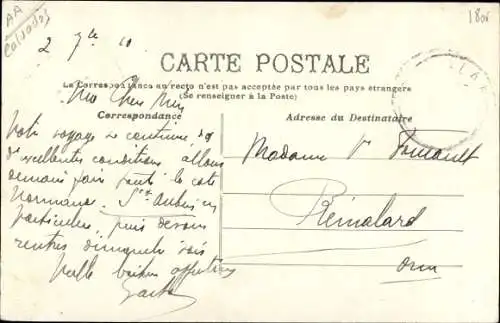 AA
Calvados
1806
2 7bre 10
CARTE POSTALE
La Correspondance au recto n'est pas acceptée par tous les pays étrangers
(Se renseigner à la Poste)
Correspondance
Adresse du Destinataire
Ma Chère
Notre voyage se continue ds
d'excellentes conditions allons
demain faire toute la côte
Normande, St Aubin en
particulier, puis devons
rentrer dimanche soir
Mille baisers affectueux
Gaston
Madame Vve
Rémalard
Orne